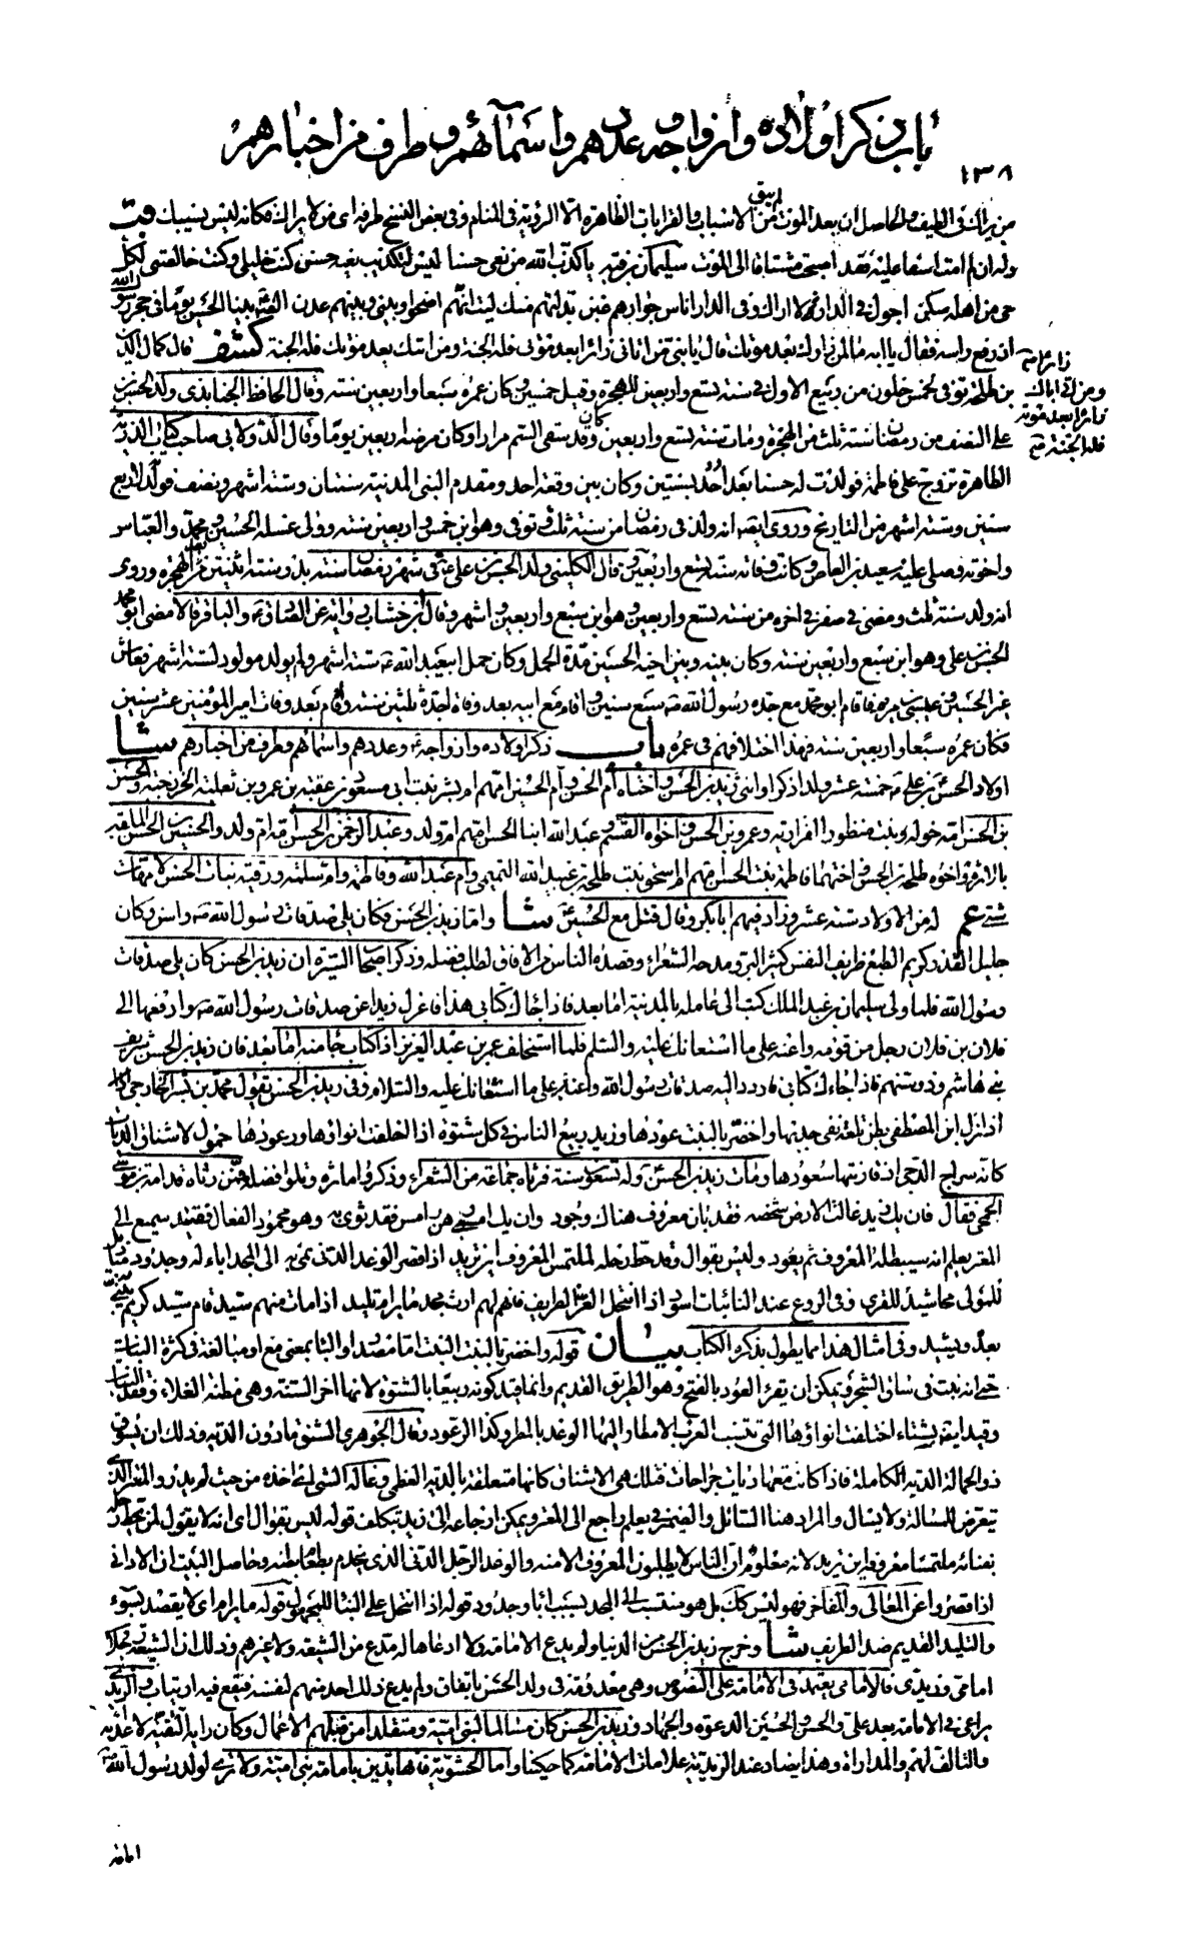 باب ذكر اولاده وازواجه وعددهم واسمآئهم وطرف من اخبارهم
١٣٨
من يراك في الطيف والحاصل ان بعد الموت لم يبق من الاسباب والقرابات الظاهرة الا الرؤية في المنام وفي بعض النسخ طرفه اى من لا يراك فكانه ليس بنسيبك قب
وله ان لم امت اسفا عليه فقد اصبحت مشتاقا الى الموت سليمان بن قتة يا كذب الله من نعى حسنا ليس لتكذيب نعيه حسن كنت خليلى وكنت خالصتى لكل
حى من اهله سكن اجول في الدار لا اراك وفى الدار اناس جوارهم غبن بدلتهم منك ليت انهم اضحوا وبينى وبينهم عدن بينا الحسن يوما في حجر رسول الله
اذ رفع راسه فقال يا ابه ما لمن زارك بعد موتك قال يا بنى من اتانى زائرا بعد موتى فله الجنة ومن اتى اباك بعد موته فله الجنة كشف قال كمال الدين
زائرا
ومن اتى اباك
زائرا بعد موته
فله الجنة
بن طلحة توفى لخمس خلون من ربيع الاول في سنة تسع واربعين للهجرة وقيل خمسين وكان عمره سبعا واربعين سنة وقال الحافظ الجنابذى ولد الحسن بن
على النصف من رمضان سنة ثلث من الهجرة ومات سنة تسع واربعين وكان قد سقى السم مرارا وكان مرضه اربعين يوما وقال الدولابى صاحب كتاب الذرية
الطاهرة تزوج على فاطمة فولدت له حسنا بعد احد بسنتين وكان بين وقعة احد ومقدم النبى المدينة سنتان وستة اشهر ونصف فولد لاربع
سنين وستة اشهر من التاريخ وروى ايضا انه ولد في رمضان من سنة ثلث وتوفى وهو ابن خمس واربعين سنة وولى غسله الحسين ومحمد والعباس
واخوته وصلى عليه سعيد بن العاص وكانت وفاته سنة تسع واربعين وقال الكلينى ولد الحسن بن على في شهر رمضان سنة بدر سنة اثنتين من الهجرة وروى
انه ولد سنة ثلث ومضى في صفر في اخره من سنة تسع واربعين وهو ابن سبع واربعين واشهر وقال ابن خشاب رواية عن الصادق والباقر قالا مضى ابو محمد
الحسن بن على وهو ابن سبع واربعين سنة وكان بينه وبين اخيه الحسين مدة الحمل وكان حمل ابيعبد الله ستة اشهر ولم يولد مولود لستة اشهر فعاش
غير الحسين وعيسى بن مريم فاقام ابو محمد مع جده رسول الله سبع سنين واقام مع ابيه بعد وفاة جده ثلثين سنة واقام بعد وفات امير المؤمنين عشر سنين
فكان عمره سبعا واربعين سنة فهذا اختلافهم في عمره باب ذكر اولاده وازواجه وعددهم واسمائهم وطرف من اخبارهم شا
اولاد الحسن بن على خمسة عشر ولدا ذكرا وانثى زيد بن الحسن واختاه ام الحسن وام الحسين امهم ام بشر بنت ابى مسعود بن عقبة بن عمرو بن ثعلبة الخزرجية والحسن
بن الحسن امه خولة بنت منظور الفزارية وعمرو بن الحسن واخواه القسم وعبد الله ابنا الحسن امهم ام ولد وعبد الرحمن بن الحسن امه ام ولد والحسين بن الحسن الملقب
بالاثرم واخوه طلحة بن الحسن واختهما فاطمة بنت الحسن امهم ام اسحق بنت طلحة بن عبيد الله التيمى وام عبد الله وفاطمة وام سلمة ورقية بنات الحسن لامهات
شتى عم له من الاولاد ستة عشر وزاد فيهم ابا بكر وقال قتل مع الحسين شا واما زيد بن الحسن فكان يلى صدقات رسول الله واسن وكان
جليل القدر كريم الطبع ظريف النفس كثير البر ومدحه الشعراء وقصده الناس من الافاق لطلب فضله وذكر اصحاب السيرة ان زيد بن الحسن كان يلى صدقات
رسول الله فلما ولى سليمان بن عبد الملك كتب الى عامله بالمدينة اما بعد فاذا جاءك كتابى هذا فاعزل زيدا عن صدقات رسول الله وادفعها الى
فلان بن فلان رجل من قومه واعنه على ما استعانك عليه والسلم فلما استخلف عمر بن عبد العزيز اذا كتاب جاء منه اما بعد فان زيد بن الحسن شريف
بنى هاشم وذو سنهم فاذا جاءك كتابى فاردد اليه صدقات رسول الله واعنه على ما استعانك عليه والسلام وفى زيد بن الحسن يقول محمد بن بشر الخارجى
اذا نزل ابن المصطفى بطن تلعة نفى جدبها واخضر بالنبت عودها وزيد ربيع الناس في كل شتوة اذا اخلفت انواؤها ورعودها حمول لاشناق الديات
كانه سراج الدجى اذ قارنتها سعودها ومات زيد بن الحسن وله تسعون سنة فرثاه جماعة من الشعراء وذكروا ماثره وتلوا فضله فممن رثاه قدامة بن موسى
الجمحى فقال فان يك زيد غالت الارض شخصه فقد بان معروف هناك وجود وان يك امسى رهن رمس فقد ثوى به وهو محمود الفعال فقيد سميع الى
المعتر يعلم انه سيطلبه المعروف ثم يعود وليس بقوال وقد حط رحله لملتمس المعروف اين تريد اذا قصر الوغد الدنى نمى به الى المجد اباء له وجدود
للمولى محاشيد للقرى وفى الروع عند النائبات اسود اذا انتحل العز الطريف فانهم لهم ارث مجد ما يرام تليد اذا مات منهم سيد قام سيد كريم يبنى
بعده ويشيد وفى امثال هذا مما يطول بذكره الكتاب بيان قوله واخضر بالنبت النبت اما مصدر او الباء بمعنى مع او مبالغة في كثرة النبات
حتى انه نبت في ساق الشجرة ويمكن ان يقرء العود بالفتح وهو الطريق القديم وانما قيد كونه ربيعا بالشتوة لانها اخر السنة وهى مظنة الغلاء وفقد النبات
وقيد ايضا بشتاء اخلفت انواؤها التى تنسب العرب الامطار اليها الوعد بالمطر وكذا الرعود وقال الجوهرى الشنق ما دون الدية وذلك ان يسوق
ذو الحمالة الدية الكاملة فاذا كانت معها ديات جراحات فتلك هى الاشناق كانها متعلقة بالدية العظمى وغاله الشىء اى اخذه من حيث لم يدر والمعتر الذى
يتعرض للمسألة ولا يسال والمراد هنا السائل والضمير في يعلم راجع الى المعتر ويمكن ارجاعه الى زيد بتكلف قوله ليس بقوال اى انه لا يقول لمن حط رحله
بفنائه ملتمسا معروفه اين تريد لانه معلوم ان الناس لا يطلبون المعروف الا منه والوغد الرجل الدنى الذى يخدم بطعام بطنه وحاصل البيت ان الادانى
اذا قصروا عن المعالى والمفاخر فهو ليس كك بل هو منتسب الى المجد بسبب اباء وجدود قوله اذا انتحل على البناء للمجهول قوله ما يرام اى لا يقصد بسوء
والتليد القديم ضد الطريف شا وخرج زيد بن الحسن من الدنيا ولم يدع الامامة ولا ادعاها له مدع من الشيعة ولا غيرهم وذلك ان الشيعة رجلان
امامى وزيدى فالامامى يعتمد في الامامة على النصوص وهى معدومة في ولد الحسن باتفاق ولم يدع ذلك احد منهم لنفسه فيقع فيه ارتياب والزيدى
يراعى في الامامة بعد على والحسن والحسين الدعوة والجهاد وزيد بن الحسن كان مسالما لبنى امية ومتقلدا من قبلهم الاعمال وكان رايه التقية لاعدائه
والتالف لهم والمداراة وهذا يضاد عند الزيدية علامات الامامة كما حكينا واما الحشوية فانها تدين بامامة بنى امية ولا ترى لولد رسول الله
امامة